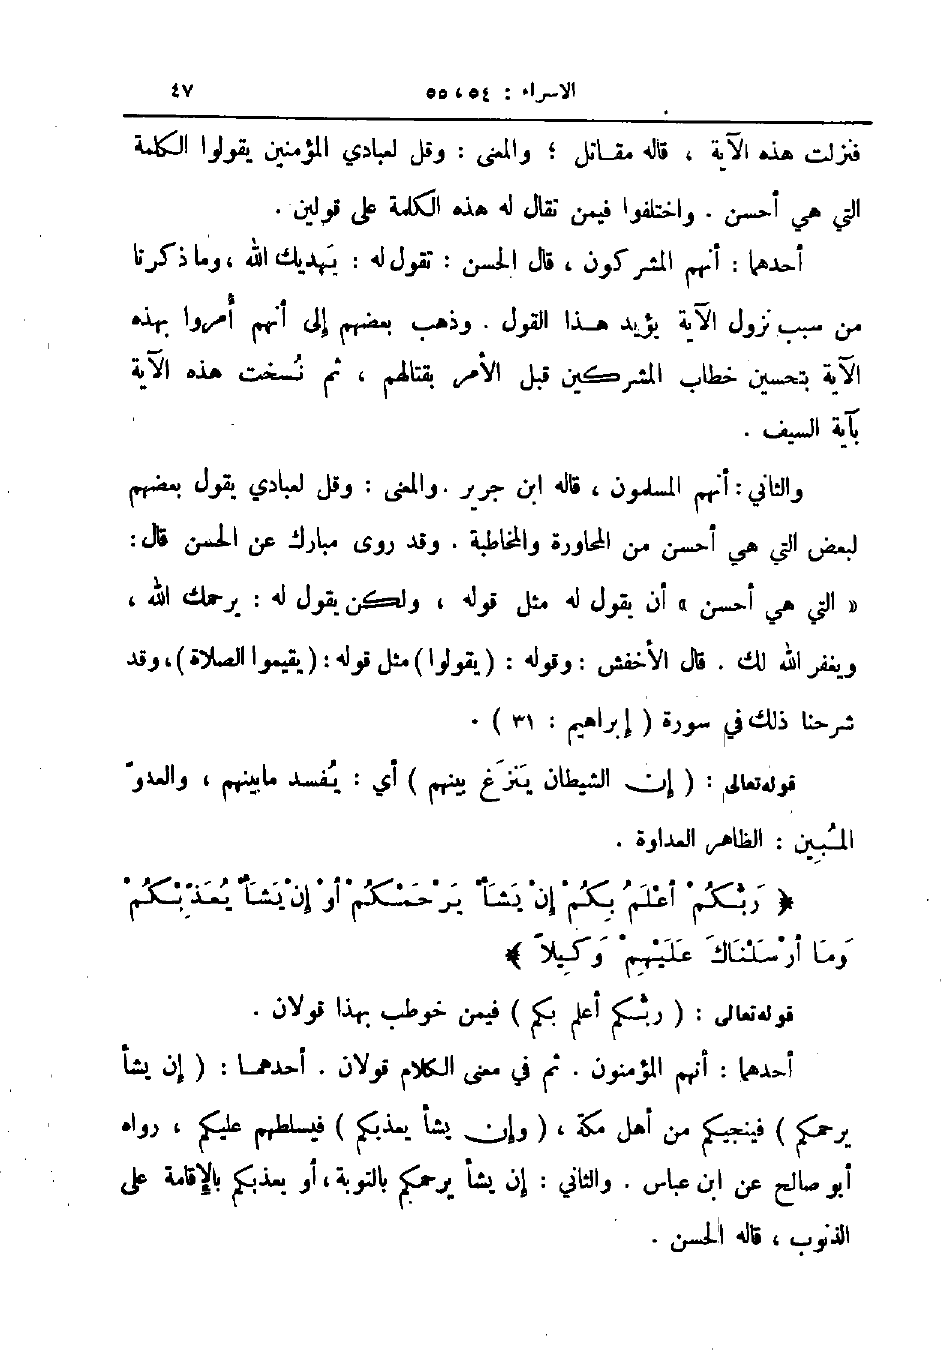 الاسراء : ٥٤ ، ٥٥ ٤٧
فنزلت هذه الآية ، قاله مقــاتل ؛ والمعنى : وقل لعبادي المؤمنين يقولوا الكلمة
التي هي أحسن . واختلفوا فيمن تقال له هذه الكلمة على قولين .
أحدهما : أنهم المشركون ، قال الحسن : تقول له : يَهديك الله ، وما ذكرنا
من سبب نزول الآية يؤيد هــذا القول . وذهب بعضهم إلى أنهم أُمروا بهذه
الآية بتحسين خطاب المشركين قبل الأمر بقتالهم ، ثم نُسخت هذه الآية
بآية السيف .
والثاني : أنهم المسلمون ، قاله ابن جرير . والمعنى : وقل لعبادي يقول بعضهم
لبعض التي هي أحسن من المحاورة والمخاطبة . وقد روى مبارك عن الحسن قال :
« التي هي أحسن » أن يقول له مثل قوله ، ولكن يقول له : يرحمك الله ،
ويغفر الله لك . قال الأخفش : وقوله : ( يقولوا ) مثل قوله : ( يقيموا الصلاة ) ، وقد
شرحنا ذلك في سورة ( إبراهيم : ٣١ ) .
قوله تعالى : ( إن الشيطان يَنزَغ بينهم ) أي : يُفسد مابينهم ، والعدوّ
المُبين : الظاهر العداوة .
﴿ رَبُّكُمْ أَعْلَمُ بِكُمْ إِنْ يَشَأْ يَرْحَمْكُمْ أَوْ إِنْ يَشَأْ يُعَذِّبْكُمْ
وَمَا أَرْسَلْنَاكَ عَلَيْهِمْ وَكِيلاً ﴾
قوله تعالى : ( ربُّكم أعلم بكم ) فيمن خوطب بهذا قولان .
أحدهما : أنهم المؤمنون . ثم في معنى الكلام قولان . أحدهمــا : ( إن يشأ
يرحمكم ) فينجيكم من أهل مكة ، ( وإن يشأ يعذبكم ) فيسلطهم عليكم ، رواه
أبو صالح عن ابن عباس . والثاني : إن يشأ يرحمكم بالتوبة ، أو يعذبكم بالإقامة على
الذنوب ، قاله الحسن .